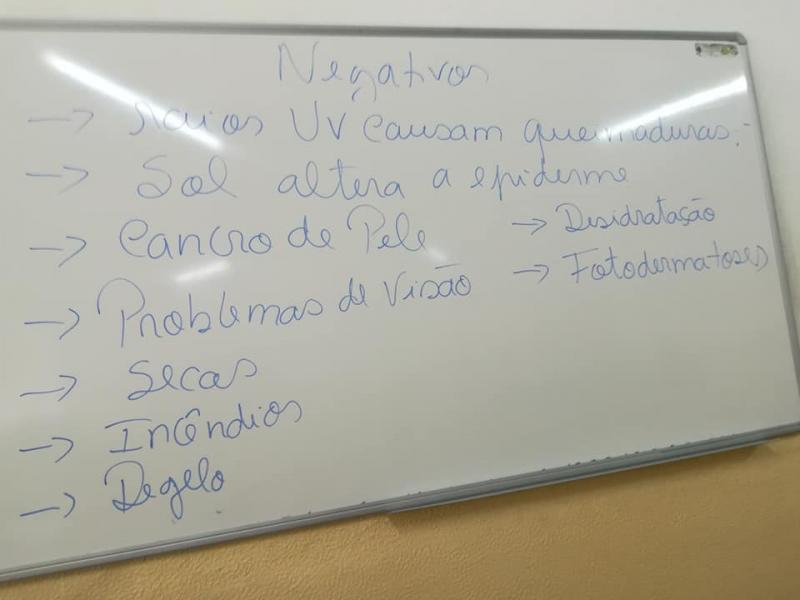 Negativos
→ Raios UV causam queimaduras;
→ Sol altera a epiderme
→ Cancro de Pele
→ Problemas de Visão
→ Secas
→ Incêndios
→ Degelo
→ Desidratação
→ Fotodermatoses